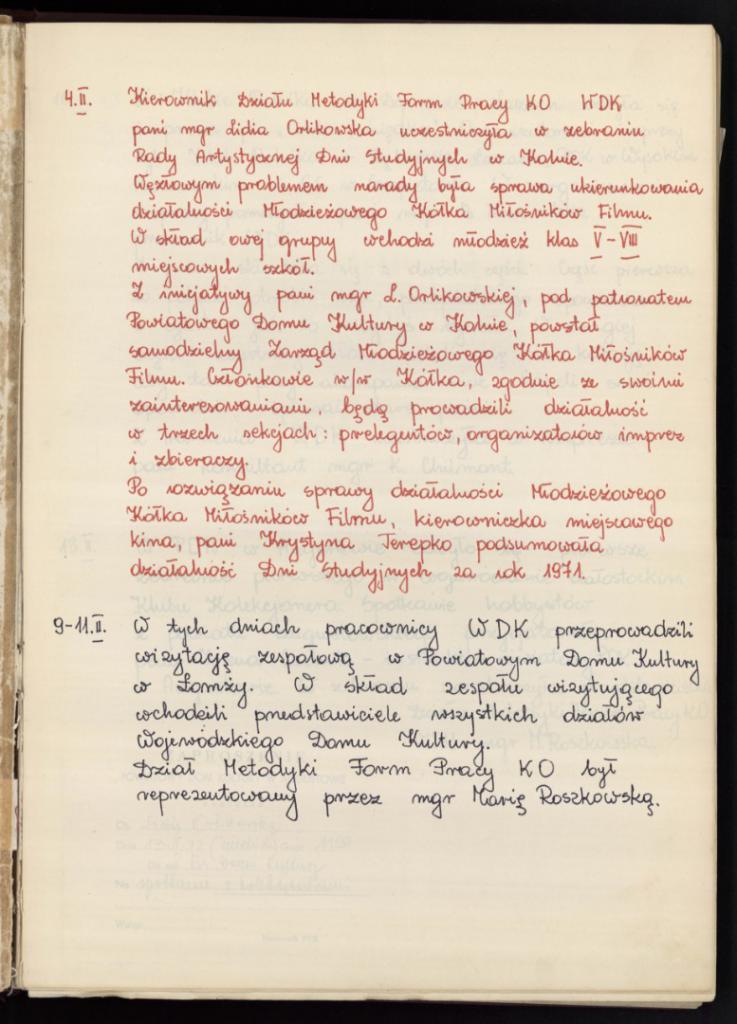 4.II. Kierownik Działu Metodyki Form Pracy KO WDK
pani mgr Lidia Orlikowska uczestniczyła w zebraniu
Rady Artystycznej Dni Studyjnych w Kolnie.
Węzłowym problemem narady była sprawa ukierunkowania
działalności Młodzieżowego Kółka Miłośników Filmu.
W skład owej grupy wchodzi młodzież klas V-VIII
miejscowych szkół.
Z inicjatywy pani mgr L. Orlikowskiej, pod patronatem
Powiatowego Domu Kultury w Kolnie, powstał
samodzielny Zarząd Młodzieżowego Kółka Miłośników
Filmu. Członkowie w/w Kółka, zgodnie ze swoimi
zainteresowaniami, będą prowadzili działalność
w trzech sekcjach: prelegentów, organizatorów imprez
i zbieraczy.
Po rozwiązaniu sprawy działalności Młodzieżowego
Kółka Miłośników Filmu, kierowniczka miejscowego
kina, pani Krystyna Terepko podsumowała
działalność Dni Studyjnych za rok 1971.
9-11.II. W tych dniach pracownicy WDK przeprowadzili
wizytację zespołową w Powiatowym Domu Kultury
w Łomży. W skład zespołu wizytującego
wchodzili przedstawiciele wszystkich działów
Wojewódzkiego Domu Kultury.
Dział Metodyki Form Pracy KO był
reprezentowany przez mgr Marię Roszkowską.